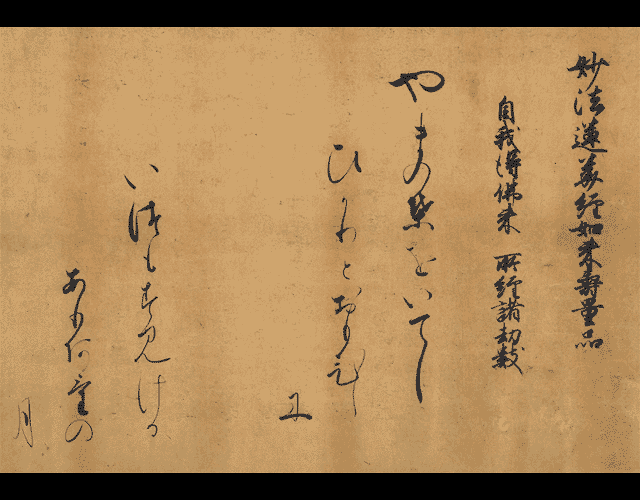 妙法蓮華経如来寿量品
自我得佛来 所経諸劫数
やまの葉をいてし
ひかりとおもひし
に
いつもすみける
ありあけの
月